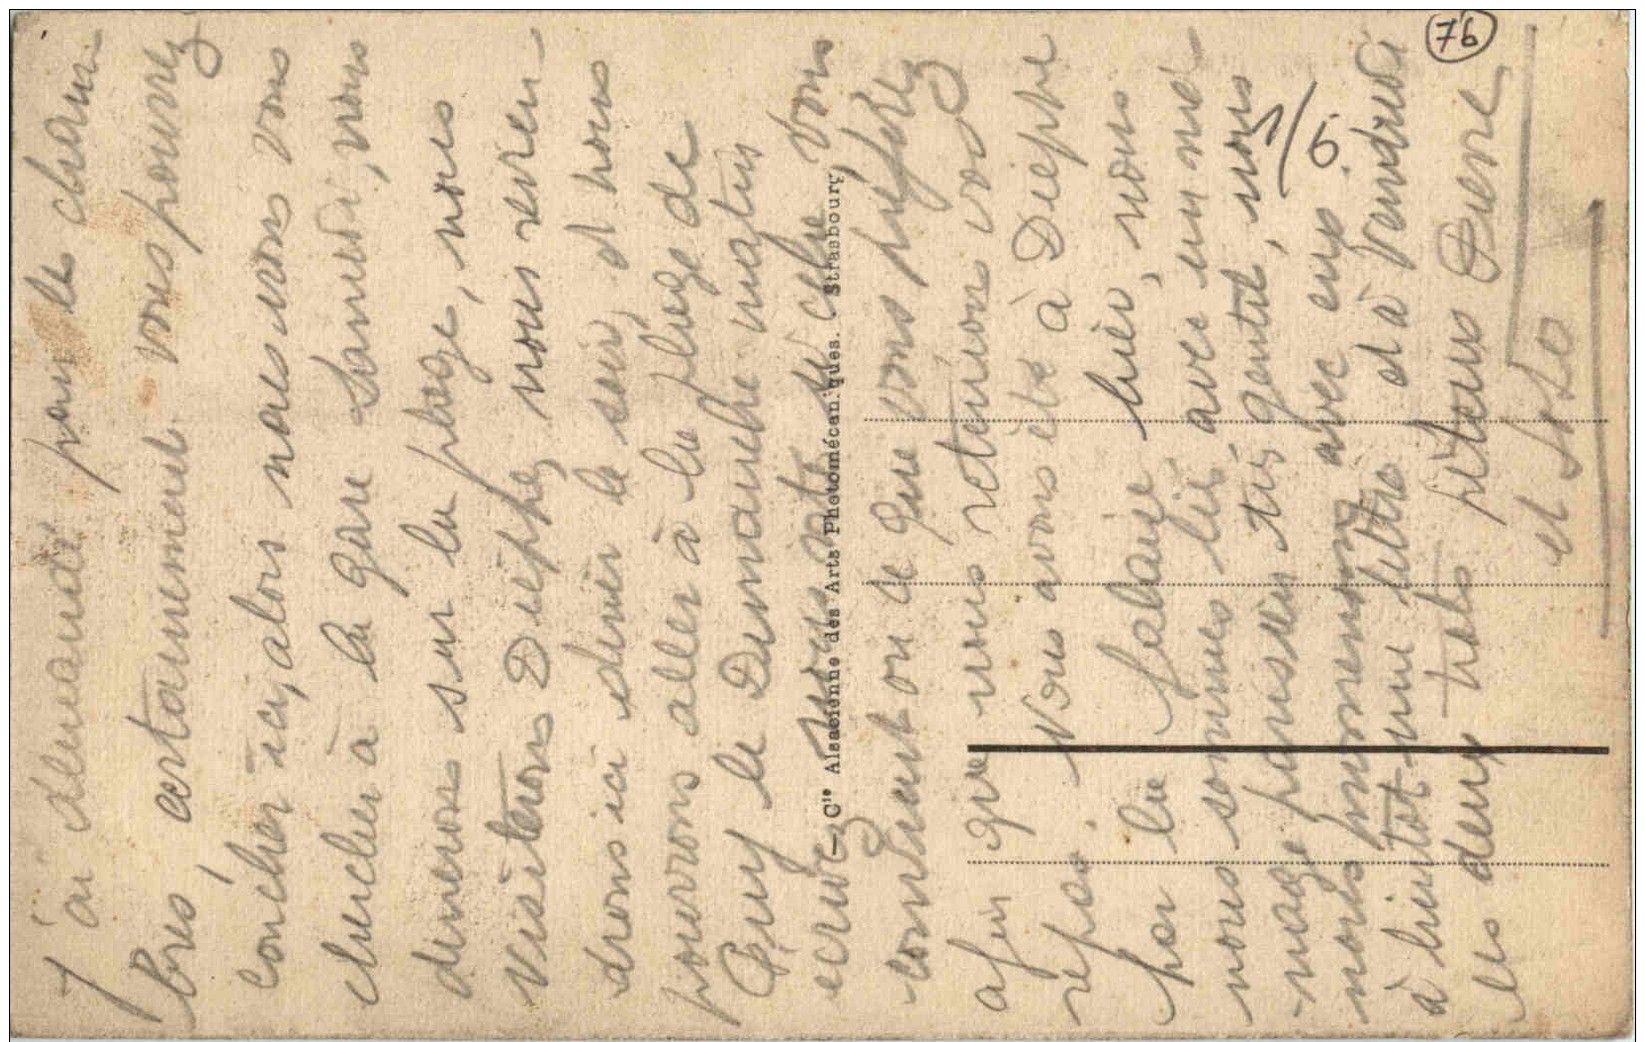 J'ai demandé pour les cham-
bres, certainement vous pourrez
coucher ici, alors nous irons vous
chercher à la gare Samedi, nous
dinerons sur la plage, nous
visiterons Dieppe, nous revien-
drons ici diner le soir, et nous
pourrons aller à la plage de
Puys le Dimanche matin
ecrivez nous vite si cela vous
convient ou ce que vous préférez
afin que nous retenions vos
repas. Nous avons été à Dieppe
par la falaise hier, nous
nous sommes liés avec un mé-
nage parisien très gentil, nous
nous promenons avec eux.
à bientôt une lettre et à Vendredi
les deux petits Pierre
et
76
1/6
Cie Alsacienne des Arts Photomécaniques. Strasbourg